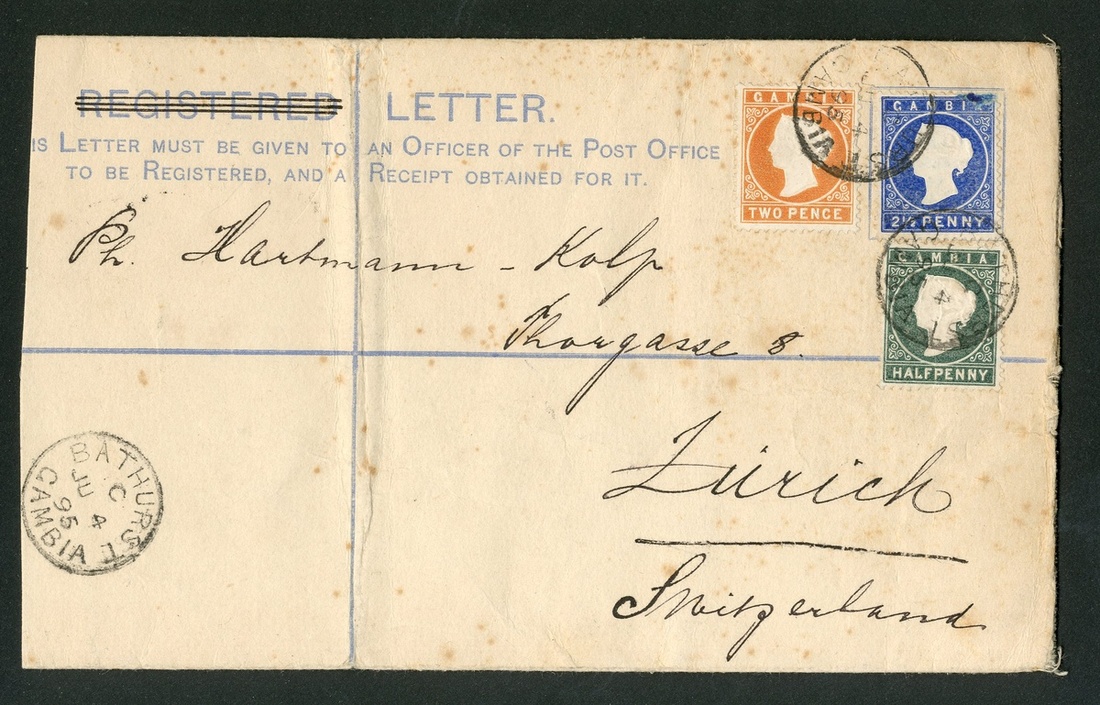 REGISTERED LETTER.
IS LETTER MUST BE GIVEN TO AN OFFICER OF THE POST OFFICE
TO BE REGISTERED, AND A RECEIPT OBTAINED FOR IT.
GAMBIA
TWO PENCE
GAMBIA
2½ PENNY
GAMBIA
HALFPENNY
Ph. Hartmann - Kolp
Thorgasse 8.
Zürich
Switzerland
BATHURST
C
JU 4
95
GAMBIA